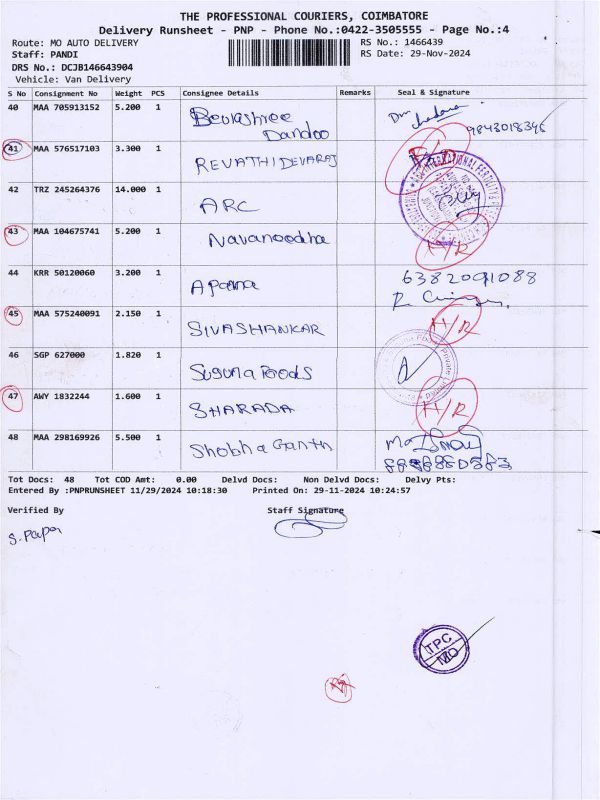 THE PROFESSIONAL COURIERS, COIMBATORE
Delivery Runsheet - PNP - Phone No.:0422-3505555 - Page No.:4
Route: MO AUTO DELIVERY RS No.: 1466439
Staff: PANDI RS Date: 29-Nov-2024
DRS No.: DCJB146643904
Vehicle: Van Delivery
S No Consignment No Weight PCS Consignee Details Remarks Seal & Signature
40 MAA 705913152 5.200 1
Dandoo 9843018346
41 MAA 576517103 3.300 1 REVATHI DEVARAJ
42 TRZ 245264376 14.000 1 ARC
43 MAA 104675741 5.200 1 Navanoodha H/R
44 KRR 50120060 3.200 1 Aparna 6382091088
45 MAA 575240091 2.150 1 SIVASHANKAR H/R
46 SGP 627000 1.820 1 Suguna Foods
47 AWY 1832244 1.600 1 SHARADA H/R
48 MAA 298169926 5.500 1 Shobha Ganthi
Tot Docs: 48 Tot COD Amt: 0.00 Delvd Docs: Non Delvd Docs: Delvy Pts:
Entered By :PNPRUNSHEET 11/29/2024 10:18:30 Printed On: 29-11-2024 10:24:57
Verified By Staff Signature
S. Papa
TPC
MO